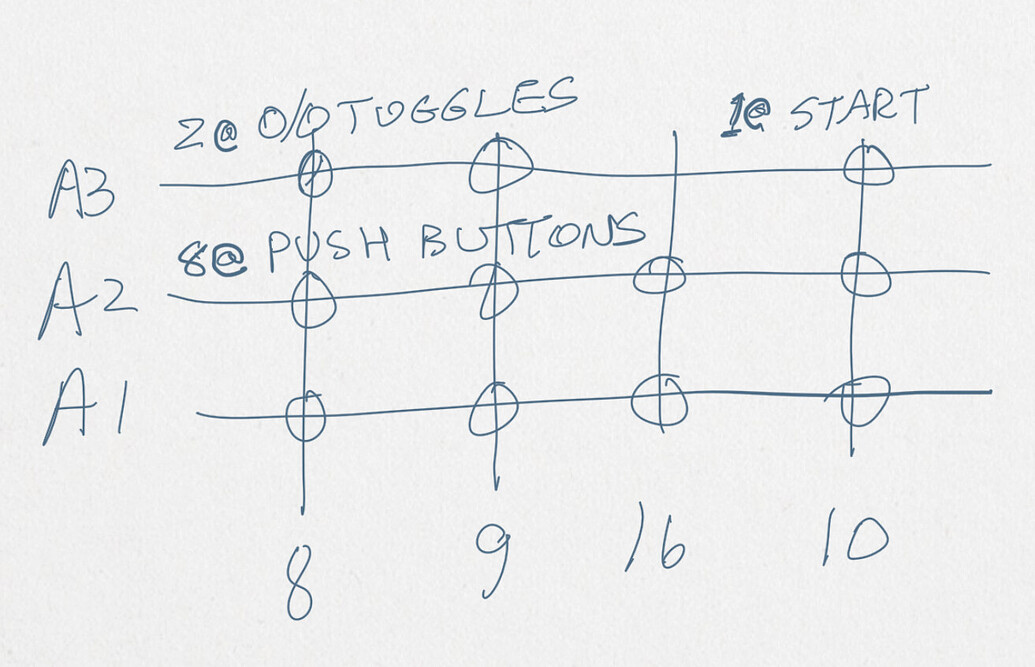 2@ O/O TOGGLES
1@ START
A3
8@ PUSH BUTTONS
A2
A1
8 9 16 10